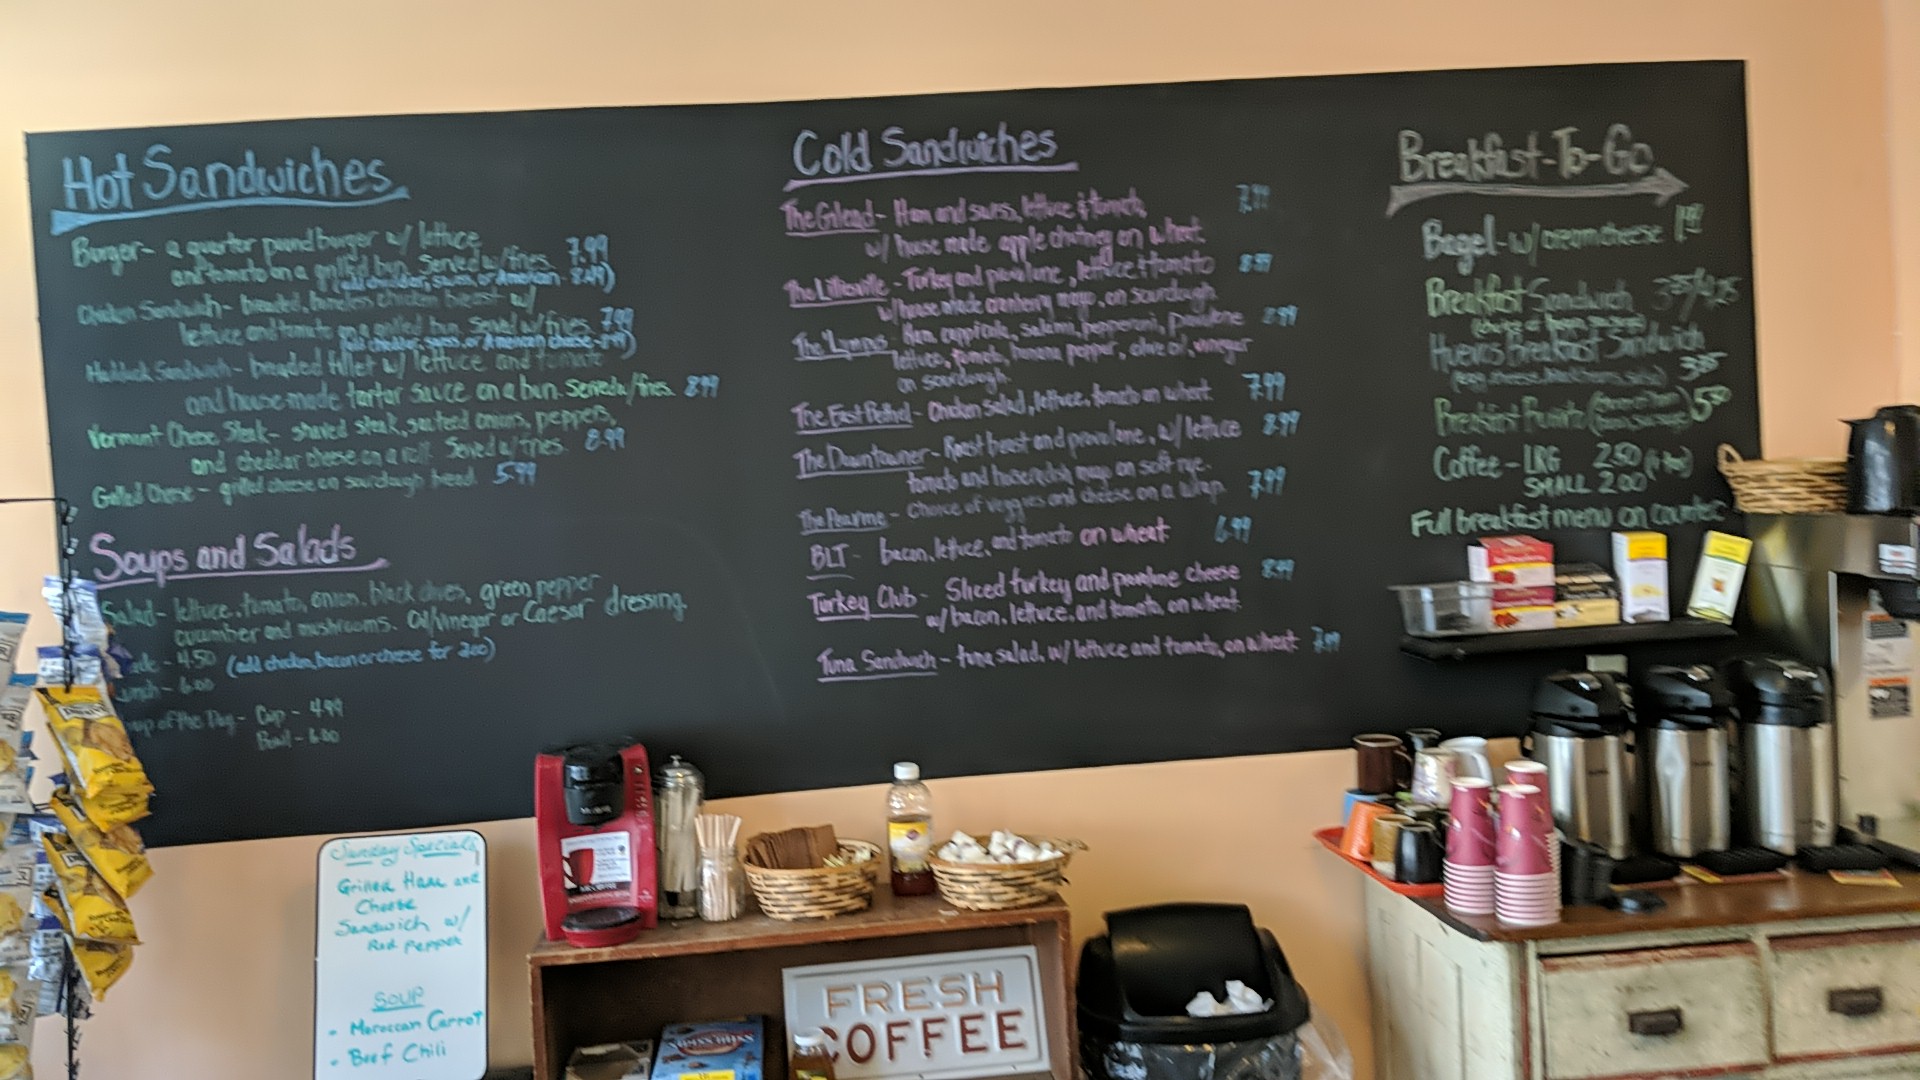 Hot Sandwiches
Burger - a quarter pound burger w/ lettuce
and tomato on a grilled bun. Served w/fries. 7.99
(add cheddar, swiss, or American 8.49)
Chicken Sandwich - breaded, boneless chicken breast w/
lettuce and tomato on a grilled bun. Served w/fries. 7.99
(add cheddar, swiss, or American cheese -
Haddock Sandwich - breaded fillet w/ lettuce and tomato
and house-made tartar sauce on a bun. Served w/fries. 8.99
Vermont Cheese Steak - shaved steak, sauteed onions, peppers,
and cheddar cheese on a roll. Served w/fries. 8.99
Grilled Cheese - grilled cheese on sourdough bread. 5.99
Soups and Salads
Salad - lettuce, tomato, onion, black olives, green pepper
cucumber and mushrooms. Oil/Vinegar or Caesar dressing.
- 4.50 (add chicken, bacon or cheese for 2.00)
- 6.00
of the Day - Cup - 4.99
Bowl - 6.00
Cold Sandwiches
The Gilead - Ham and swiss, lettuce & tomato, 7.99
w/ house made apple chutney on wheat.
The Lilliesville - Turkey and provolone, lettuce & tomato 8.99
w/house made cranberry mayo, on sourdough.
The Lyons - Ham, cappicola, salami, pepperoni, provolone 8.99
lettuce, tomato, banana pepper, olive oil, vinegar
on sourdough.
The East Bethel - Chicken salad, lettuce, tomato on wheat. 7.99
The Downtowner - Roast beast and provolone, w/ lettuce 8.99
tomato and horseradish mayo on soft rye.
The - Choice of veggies and cheese on a wrap. 7.99
BLT - bacon, lettuce, and tomato on wheat. 6.99
Turkey Club - Sliced turkey and provolone cheese 8.99
w/ bacon, lettuce, and tomato, on wheat.
Tuna Sandwich - tuna salad, w/ lettuce and tomato, on wheat. 7.99
Breakfast-To-Go
Bagel - w/ cream cheese
Breakfast Sandwich
Huevos Breakfast Sandwich
Breakfast Burrito
Coffee - LRG 2.50
SMALL 2.00
Full breakfast menu on counter
Sunday Specials
Grilled Ham and
Cheese
Sandwich w/
Red Pepper
SOUP
• Moroccan Carrot
• Beef Chili
FRESH
COFFEE
SWISS MISS